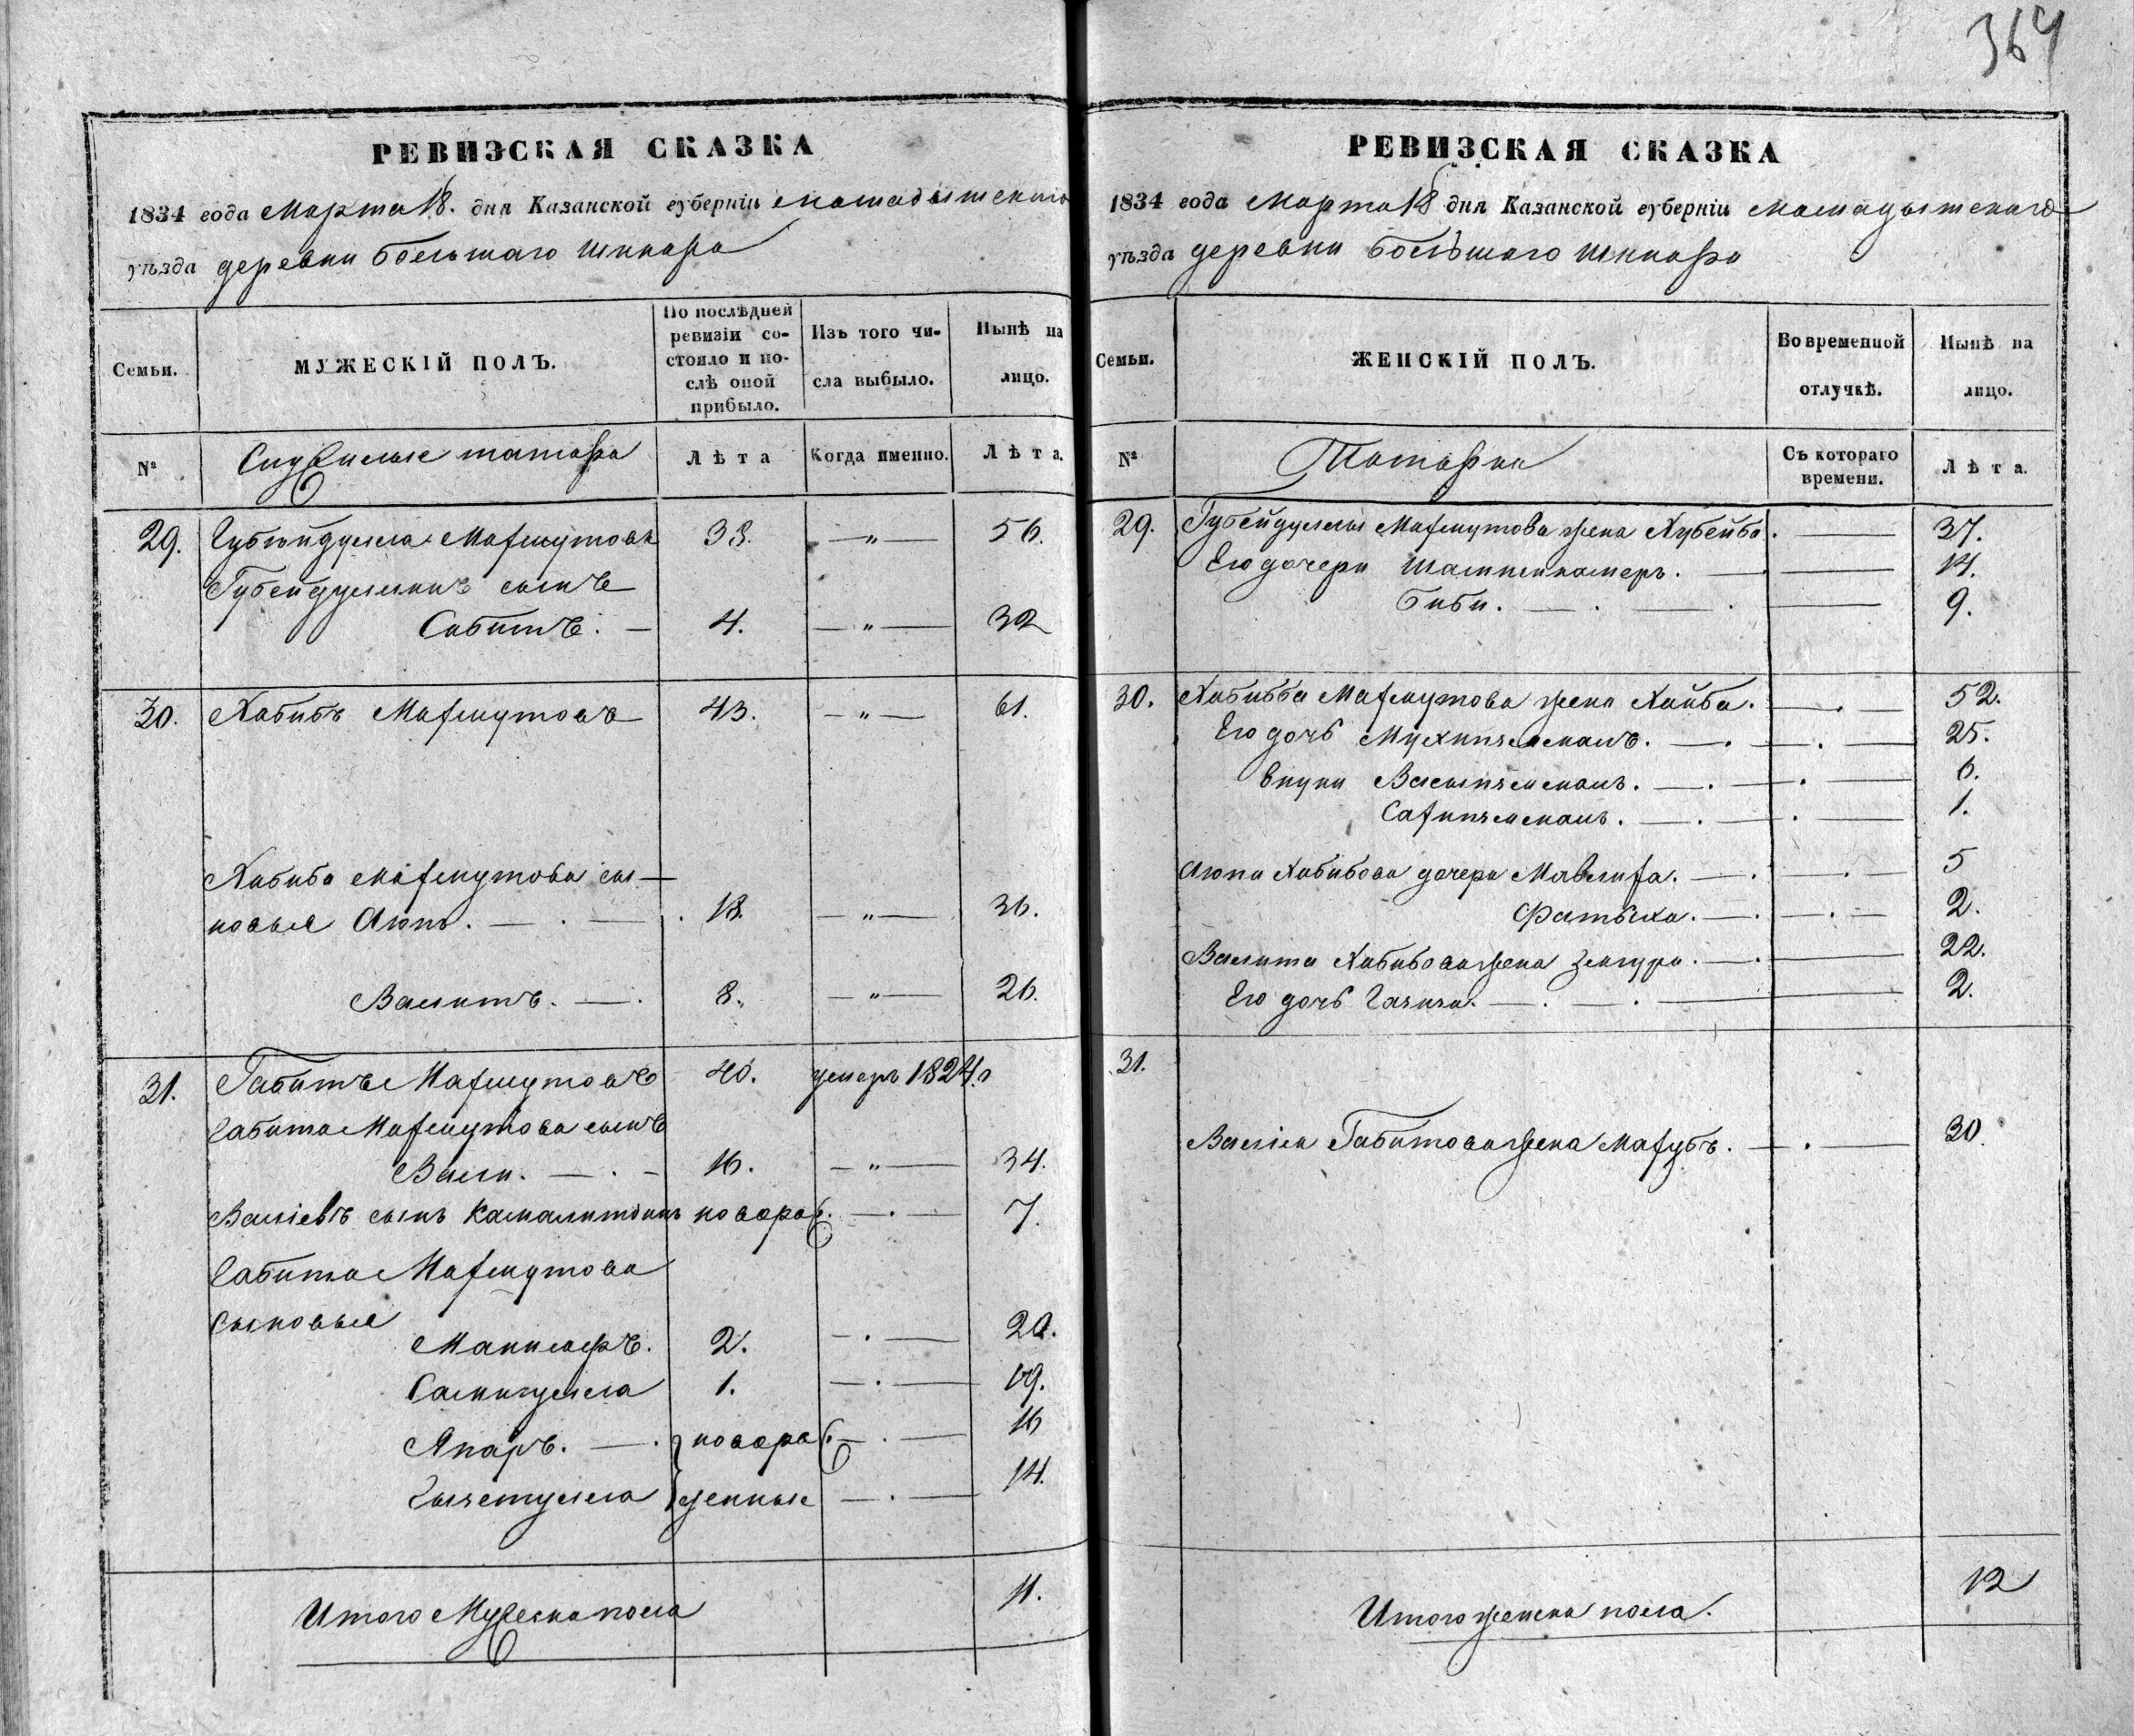 364
РЕВИЗСКАЯ СКАЗКА
1834 года Марта 18. дня Казанской губерніи Мамадышскаго
уѣзда деревни Большаго Шинара
Семьи.
МУЖЕСКІЙ ПОЛЪ.
По послѣдней ревизіи со-
стояло и по-
слѣ оной
прибыло.
Изъ того чи-
сла выбыло.
Нынѣ на
лицо.
№
Служилые татара
Лѣта
Когда именно.
Лѣта.
29. Губейдулла Махмутовъ 38. —"— 56.
Губейдуллинъ сынъ
Сабитъ. — 4. —"— 32
30. Хабибъ Махмутовъ 43. —"— 61.
Хабиба Махмутова сы—
новья Аюпъ. — . — . 18. —"— 36.
Валитъ. — . 8. —"— 26.
31. Габитъ Махмутовъ 40. умеръ 1824.
Габита Махмутова сынъ
Вали. — . — 16. —"— 34.
Валіевъ сынъ Камалитдинъ новорож. — . — 7.
Габита Махмутова
сыновья
Маннафъ. 2. — . — 20.
Самигулла 1. — . — 19.
Япаръ. — . новорож. — . — 16
денные — . — 14.
Итого Мужеска пола 11.
РЕВИЗСКАЯ СКАЗКА
1834 года Марта 18 дня Казанской губерніи Мамадышскаго
уѣзда деревни Большаго Шинара
Семьи.
ЖЕНСКІЙ ПОЛЪ.
Во временной
отлучкѣ.
Нынѣ на
лицо.
№
Татарки
Съ котораго
времени.
Лѣта.
29. Губейдуллы Махмутова жена Хубейба. — 37.
Его дочери — 14.
Биби. — . — . — 9.
30. Хабибба Махмутова жена Хайба. — . — 52.
Его дочь — . — . — 25.
внуки — . — . — 6.
— . — . — 1.
Аюпа Хабибова дочери — . — . — 5
Фатыха. — . — . — 2.
Валита Хабибова жена — . — 22.
Его дочь Газиза. — . — . — 2.
31.
Валія Габитова жена Махубъ. — . — 30.
Итого женска пола. 12